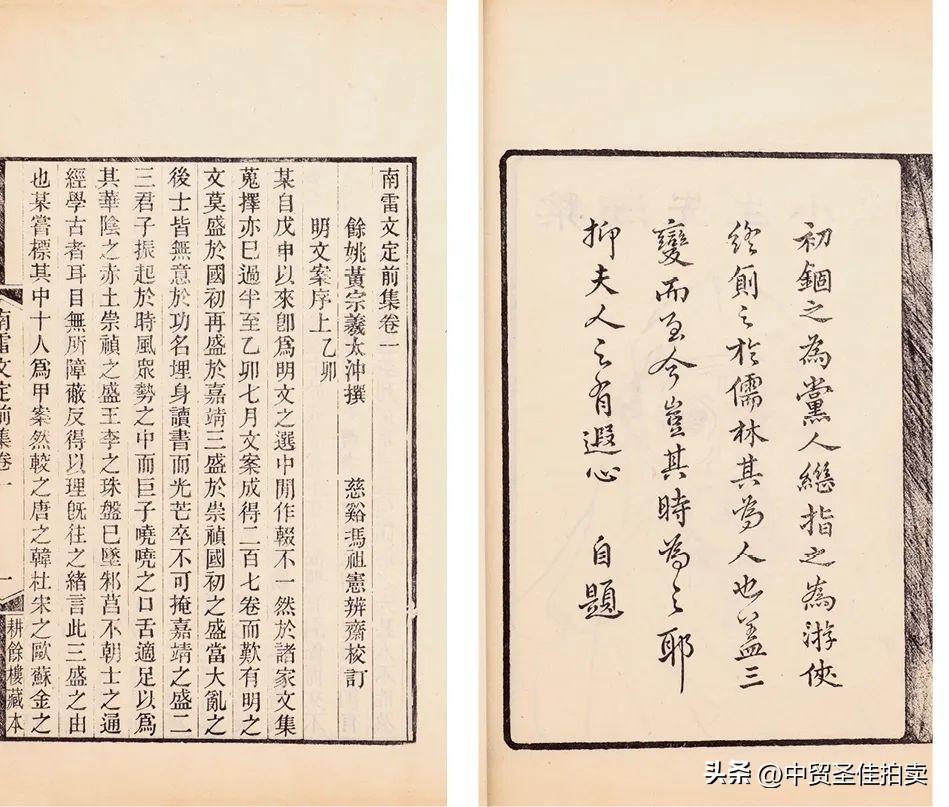 初錮之為黨人繼指之為游俠
終廁之於儒林其為人也蓋三
變而至今豈其時為之耶
抑夫人之有遐心 自題
南雷文定前集卷一
餘姚黃宗羲太沖撰 慈谿馮祖憲辨齋校訂
明文案序上 乙卯
某自戊申以來卽爲明文之選中閒作輟不一然於諸家文集
蒐擇亦已過半至乙卯七月文案成得二百七卷而歎有明之
文莫盛於國初再盛於嘉靖三盛於崇禎國初之盛當大亂之
後士皆無意於功名埋身讀書而光芒卒不可掩嘉靖之盛二
三君子振起於時風眾勢之中而巨子嘵嘵之口舌適足以爲
其華陰之赤土崇禎之盛王李之珠盤已墜邾莒不朝士之通
經學古者耳目無所障蔽反得以理旣往之緒言此三盛之由
也某嘗標其中十人爲甲案然較之唐之韓杜宋之歐蘇金之
南雷文定前集卷一
一
耕餘樓藏本
头条 @中贸圣佳拍卖